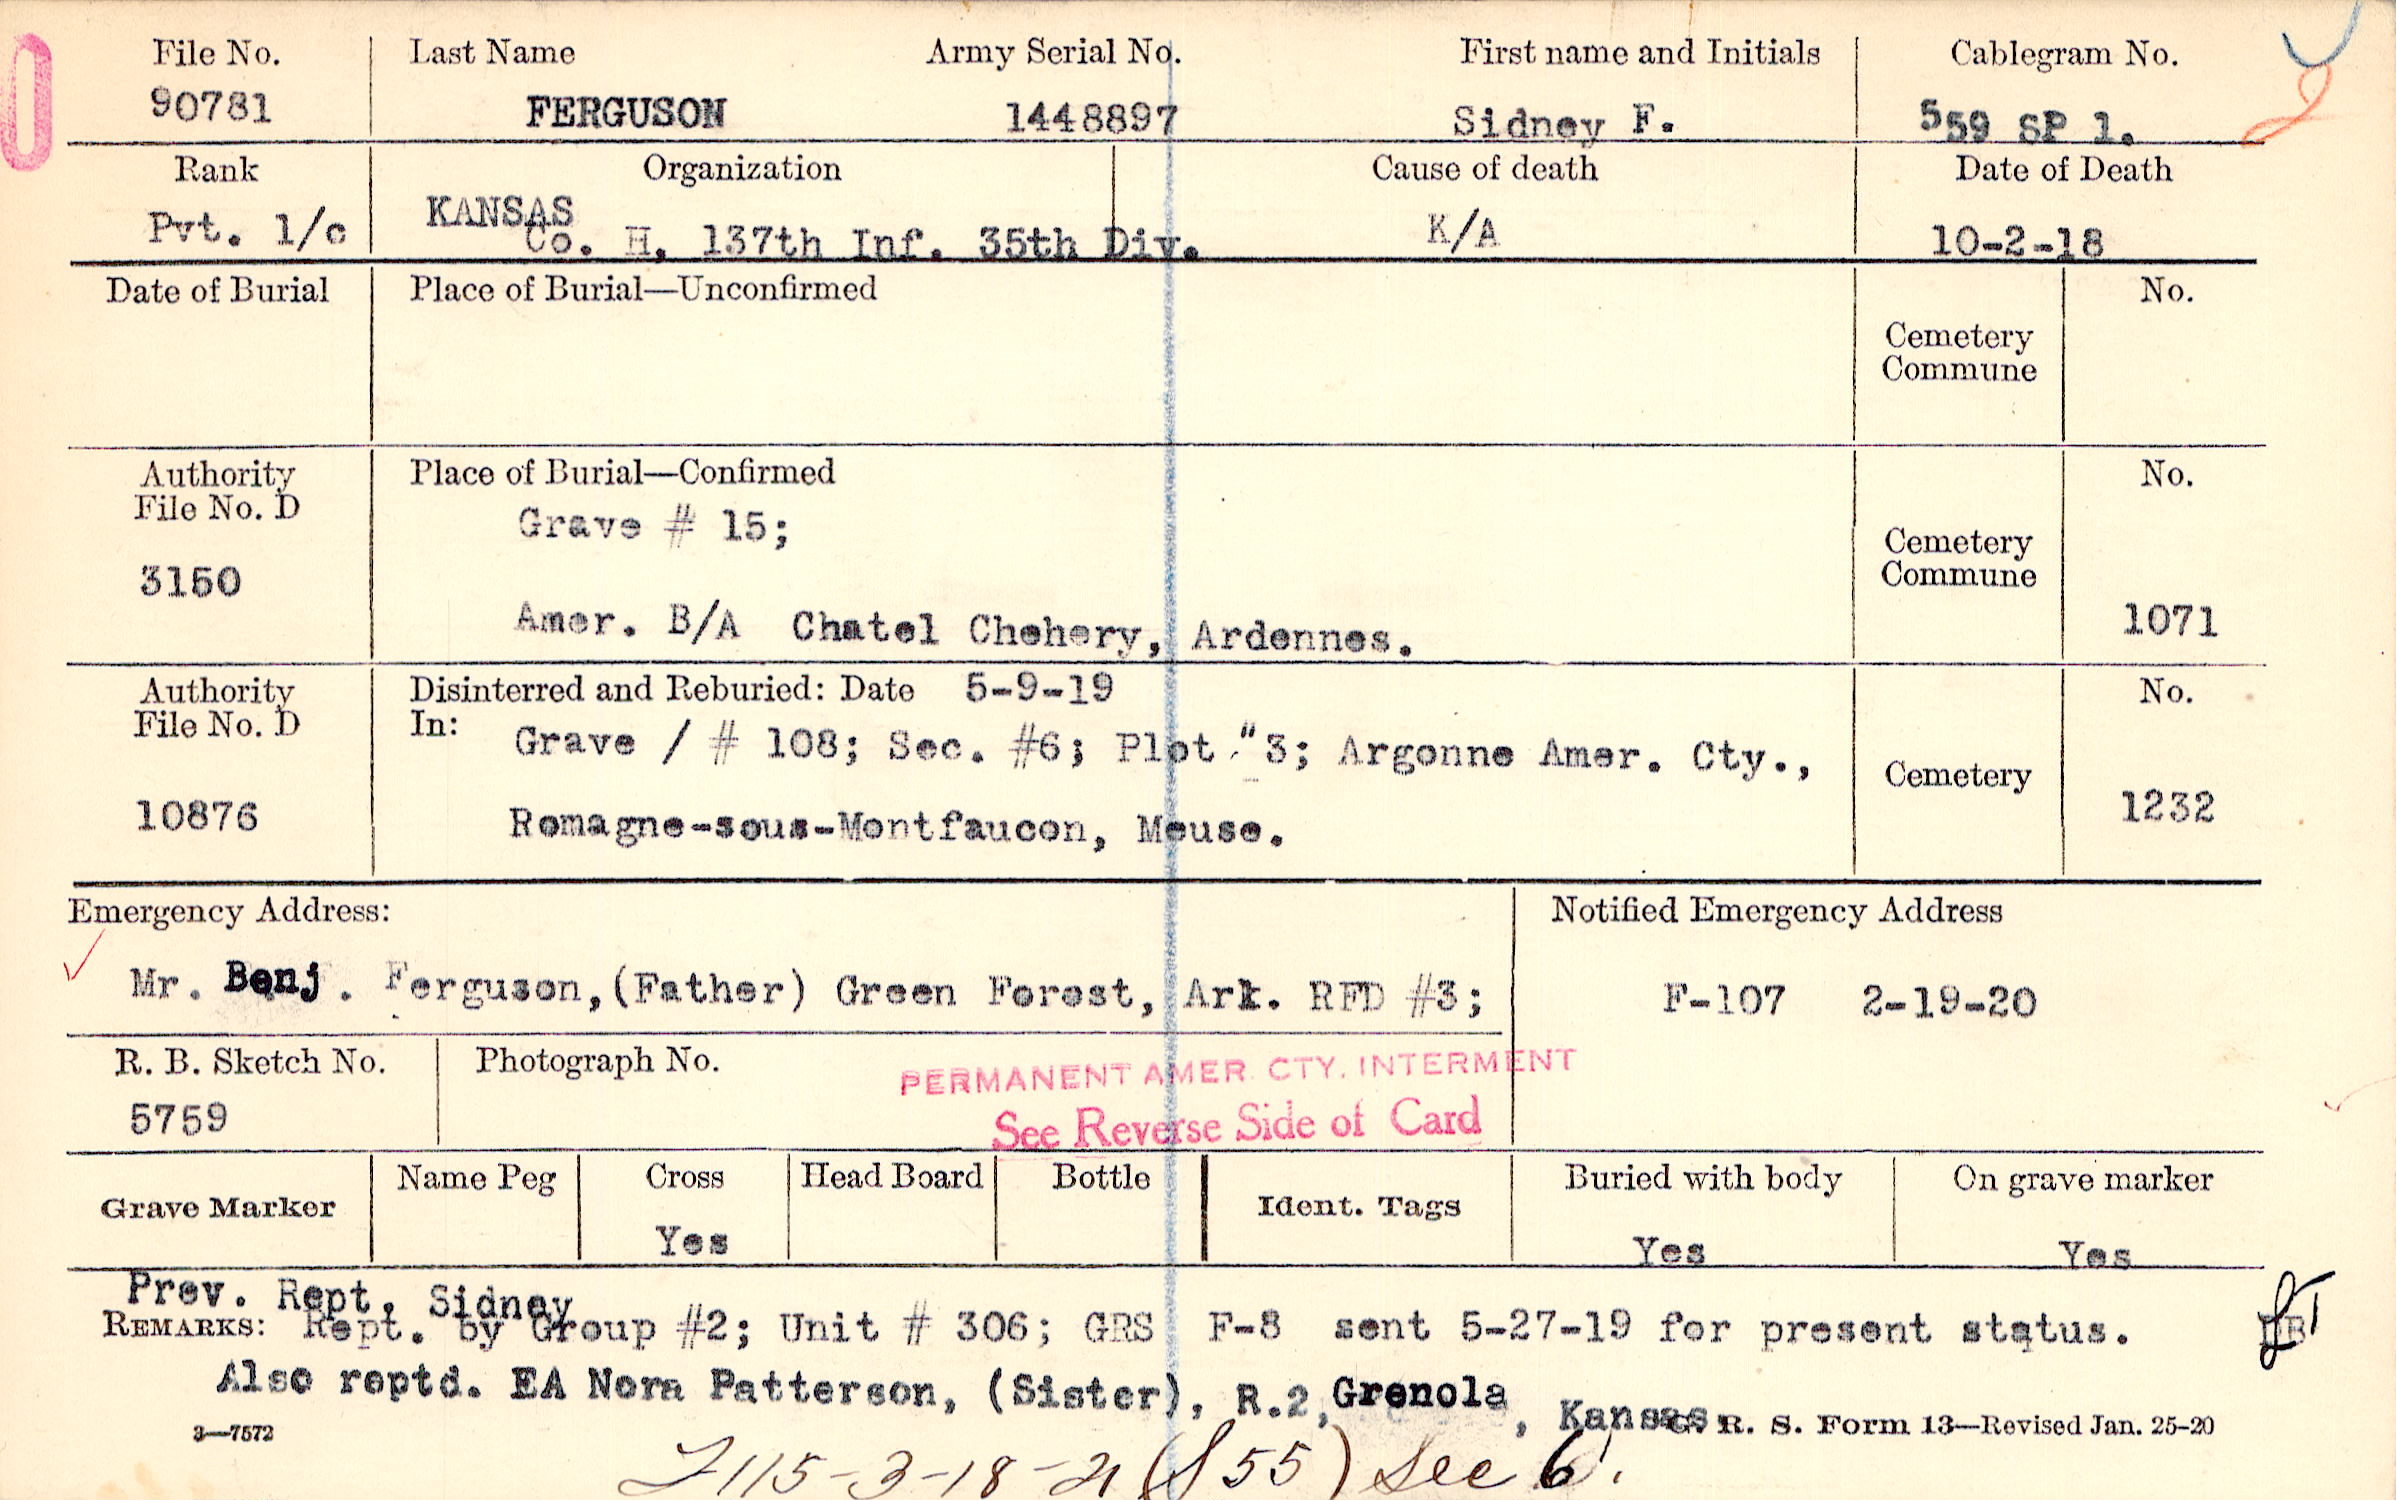 File No. Last Name Army Serial No. First name and Initials Cablegram No.
90781 FERGUSON 1448897 Sidney F. 559 SP 1.
Rank Organization Cause of death Date of Death
Pvt. 1/c KANSAS Co. H, 137th Inf. 35th Div. K/A 10-2-18
Date of Burial Place of Burial—Unconfirmed No.
Cemetery
Commune
Authority Place of Burial—Confirmed No.
File No. D Grave # 15;
Cemetery
3150 Commune
Amer. B/A Chatel Chehery, Ardennes. 1071
Authority Disinterred and Reburied: Date 5-9-19 No.
File No. D In: Grave / # 108; Sec. #6; Plot "3; Argonne Amer. Cty.,
Cemetery
10876 Romagne-sous-Montfaucon, Meuse. 1232
Emergency Address: Notified Emergency Address
Mr. Benj. Ferguson,(Father) Green Forest, Ark. RFD #3; F-107 2-19-20
R. B. Sketch No. Photograph No. PERMANENT AMER. CTY. INTERMENT
5759 See Reverse Side of Card
Grave Marker Name Peg Cross Head Board Bottle Ident. Tags Buried with body On grave marker
Yes Yes Yes
Prev. Rept. Sidney
REMARKS: Rept. by Group #2; Unit # 306; GRS F-8 sent 5-27-19 for present status.
Also reptd. EA Nora Patterson, (Sister), R.2, Grenola, Kansas.
3—7572 G. R. S. Form 13—Revised Jan. 25-20
115-3-18-21 (S55) See 6